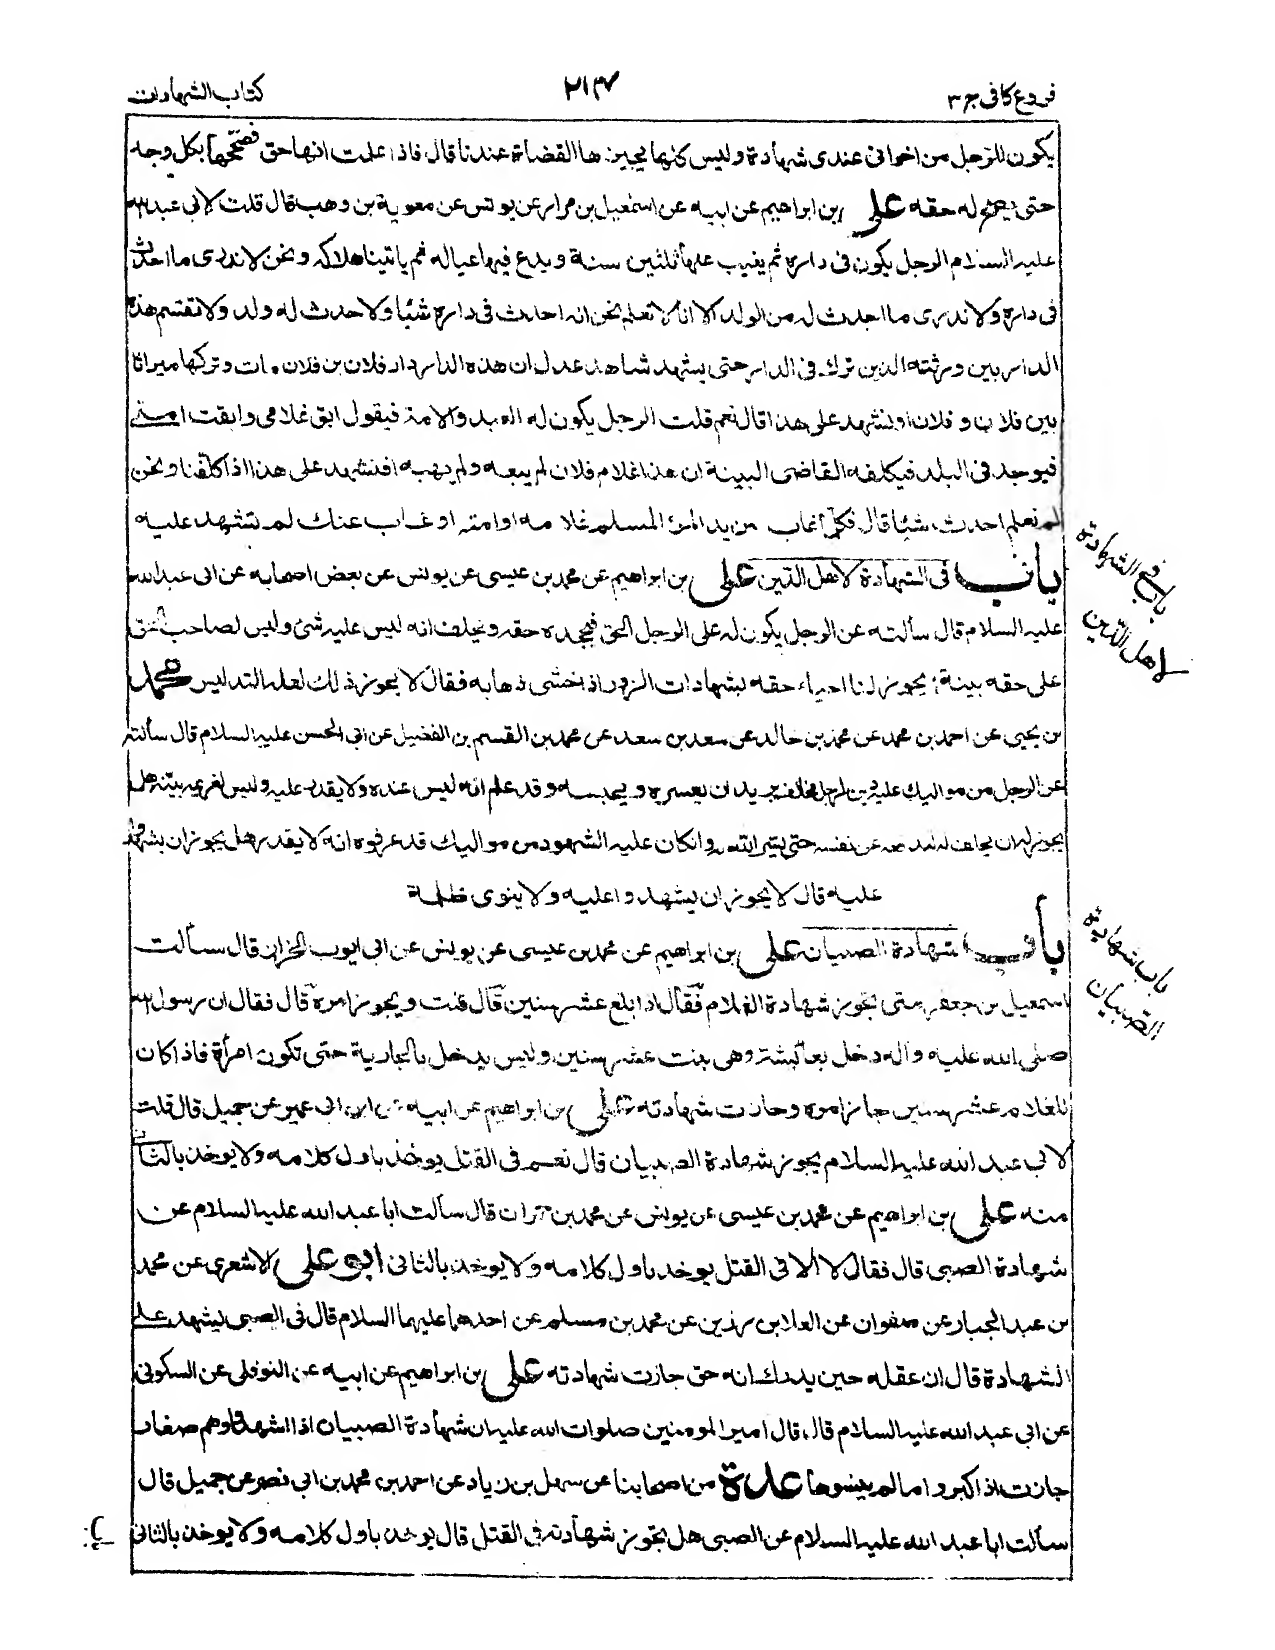 فروع كافى ج ٣
كتاب الشهادات
يكون للرجل من اخوانى عندى شهادة وليس كلها يجيزها القضاة عندنا قال فاذا علمت انها حق فصححها بكل وجه
حتى يصح له حقه على بن ابراهيم عن ابيه عن اسمعيل بن مرار عن يونس عن معوية بن وهب قال قلت لابى عبد الله
عليه السلام الرجل يكون فى داره ثم يغيب عنها ثلثين سنة ويدع فيها عياله ثم ياتينا هلاكه ونحن لا ندرى ما احدث
فى داره ولا ندرى ما احدث له من الولد الا انا لا نعلم نحن انه احدث فى داره شيئا ولا حدث له ولد ولا تقتسم هذه
الدار بين ورثته الذين ترك فى الدار حتى يشهد شاهد عدل ان هذه الدار دار فلان بن فلان مات وتركها ميراثا
بين فلان و فلان او نشهد على هذا قال نعم قلت الرجل يكون له العبد والامة فيقول ابق غلامى وابقت امتى
فيوجد فى البلد فيكلفه القاضى البينة ان هذا غلام فلان لم يبعه ولم يهبه افنشهد على هذا اذا كلفنا ونحن
لم نعلم احدث شيئا قال فكل ما غاب من يد المرء المسلم غلامه او امته او غاب عنك لم تشهد عليه
باب فى الشهادة لاهل الدين على بن ابراهيم عن محمد بن عيسى عن يونس عن بعض اصحابه عن ابى عبد الله
عليه السلام قال سألته عن الرجل يكون له على الرجل الحق فيجحده حقه ويحلف انه ليس عليه شئ وليس لصاحب الحق
على حقه بينة يجوز لنا احياء حقه بشهادات الزور اذ يخشى ذهابه فقال لا يجوز ذلك لعلة التدليس محمد
بن يحيى عن احمد بن محمد عن محمد بن خالد عن سعد بن سعد عن محمد بن القسم بن الفضيل عن ابى الحسن عليه السلام قال سألته
عن الرجل من مواليك عليه دين لرجل مخالف يريد ان يعسره ويحبسه وقد علم انه ليس عنده ولا يقدر عليه وليس لغريمه بينة هل
يجوز له ان يحلف له ليدفعه عن نفسه حتى ييسر الله له وان كان عليه الشهود من مواليك قد عرفوه انه لا يقدر هل يجوز ان يشهدوا
عليه قال لا يجوز ان يشهدوا عليه ولا ينوى ظلمه
باب شهادة الصبيان على بن ابراهيم عن محمد بن عيسى عن يونس عن ابى ايوب الخزاز قال سألت
اسمعيل بن جعفر متى تجوز شهادة الغلام فقال اذا بلغ عشر سنين قال قلت ويجوز امره قال فقال ان رسول الله
صلى الله عليه وآله دخل بعائشة وهى بنت عشر سنين وليس يدخل بالجارية حتى تكون امرأة فاذا كان
للغلام عشر سنين جاز امره وجازت شهادته على بن ابراهيم عن ابيه عن ابن ابى عمير عن جميل قال قلت
لابى عبد الله عليه السلام يجوز شهادة الصبيان قال نعم فى القتل يوخذ باول كلامه ولا يوخذ بالثانى
منه على بن ابراهيم عن محمد بن عيسى عن يونس عن محمد بن حمران قال سألت ابا عبد الله عليه السلام عن
شهادة الصبى قال فقال لا الا فى القتل يوخذ باول كلامه ولا يوخذ بالثانى ابو على الاشعرى عن محمد
بن عبد الجبار عن صفوان عن العلا بن رزين عن محمد بن مسلم عن احدهما عليهما السلام قال فى الصبى يشهد على
الشهادة قال ان عقله حين يدرك انه حق جازت شهادته على بن ابراهيم عن ابيه عن النوفلى عن السكونى
عن ابى عبد الله عليه السلام قال قال امير المومنين صلوات الله عليه ان شهادة الصبيان اذا اشهدوا وهم صغار
جازت اذا كبروا ما لم ينسوها عدة من اصحابنا عن سهل بن زياد عن احمد بن محمد بن ابى نصر عن جميل قال
سألت ابا عبد الله عليه السلام عن الصبى هل تجوز شهادته فى القتل قال يوخذ باول كلامه ولا يوخذ بالثانى
باب فى الشهادة
لاهل الدين
باب شهادة
الصبيان